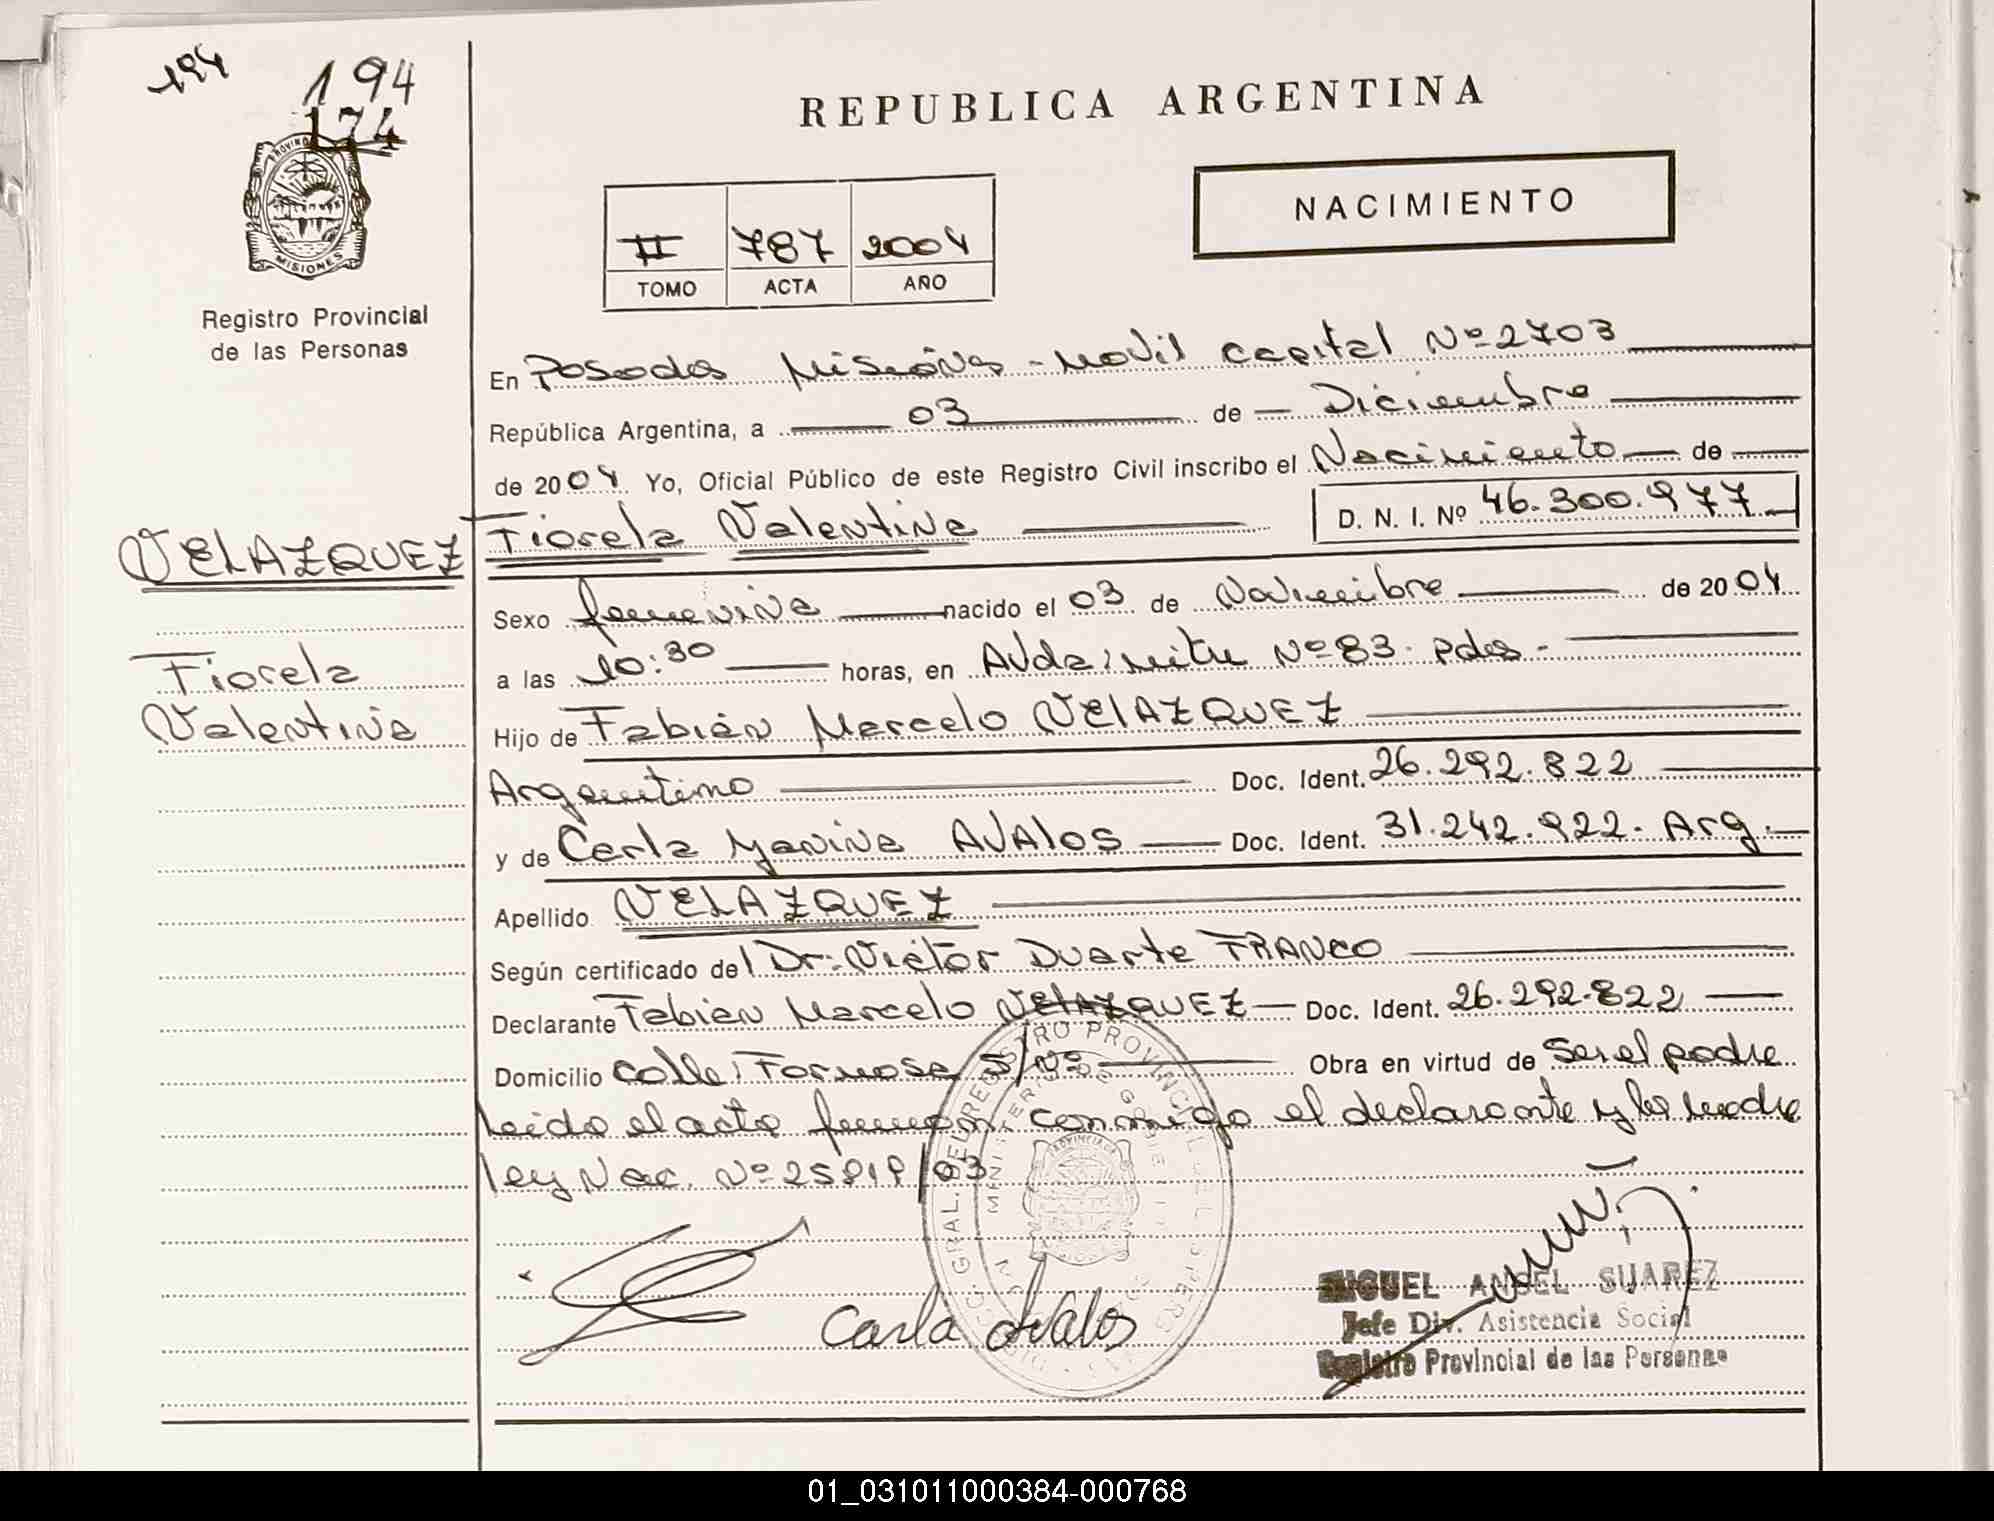 194
194
174
PROVINCIA
MISIONES
Registro Provincial
de las Personas
REPUBLICA ARGENTINA
NACIMIENTO
II 787 2004
TOMO ACTA AÑO
En Posadas Misiones - Movil Capital Nº 2703
República Argentina, a 03 de Diciembre
de 2004 Yo, Oficial Público de este Registro Civil inscribo el Nacimiento de
VELAZQUEZ Fiorela Valentina D. N. I. Nº 46.300.977
Sexo femenina nacido el 03 de Noviembre de 2004
Fiorela
Valentina
a las 10:30 horas, en Avda: mitre Nº 83. pdas -
Hijo de Fabián Marcelo VELAZQUEZ
Argentino Doc. Ident. 26.292.822
y de Carla Yanina AVALOS Doc. Ident. 31.242.922. Arg.
Apellido VELAZQUEZ
Según certificado del Dr: Victor Duarte FRANCO
Declarante Fabian Marcelo VELAZQUEZ Doc. Ident. 26.292.822
Domicilio Calle: Formosa S/Nº Obra en virtud de Ser el padre
leido el acta firman conmigo el declarante y la madre
ley Nac. Nº 25819/03
Carla Avalos
MIGUEL ANGEL SUAREZ
Jefe Div. Asistencia Social
Registro Provincial de las Personas
01_031011000384-000768